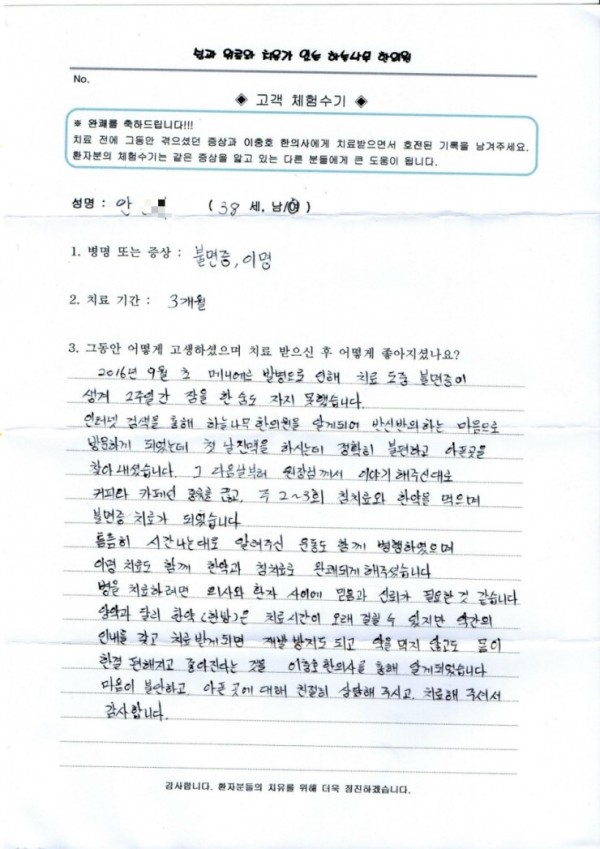 No.
◈ 고객 체험수기 ◈
※ 완쾌를 축하드립니다!!!
치료 전에 그동안 겪으셨던 증상과 이충호 한의사에게 치료받으면서 호전된 기록을 남겨주세요.
환자분의 체험수기는 같은 증상을 앓고 있는 다른 분들에게 큰 도움이 됩니다.
성명 : 안 ( 38 세, 남/여 )
1. 병명 또는 증상 : 불면증, 이명
2. 치료 기간 : 3개월
3. 그동안 어떻게 고생하셨으며 치료 받으신 후 어떻게 좋아지셨나요?
2016년 9월 초 메니에르 발병으로 인해 치료 도중 불면증이
생겨 2주일간 잠을 한 숨도 자지 못했습니다.
인터넷 검색을 통해 하늘나무한의원을 알게되어 반신반의하는 마음으로
방문하게 되었는데 첫 날 진맥을 하시는데 정확히 불편하고 아픈곳을
찾아내셨습니다. 그 다음날부터 원장님께서 이야기 해주신대로
커피와 카페인 종류를 끊고, 주 2~3회 침치료와 한약을 먹으며
불면증 치료가 되었습니다
틈틈히 시간나는대로 알려주신 운동도 함께 병행하였으며
이명 치료도 함께 한약과 침치료로 완쾌되게 해주셨습니다
병을 치료하려면 의사와 환자 사이에 믿음과 신뢰가 필요한 것 같습니다
양약과 달리 한약(한방)은 치료시간이 오래 걸릴 수 있지만 약간의
인내를 갖고 치료 받게 되면 재발 방지도 되고 약을 먹지 않고도 몸이
한결 편해지고 좋아진다는 것을 이충호 한의사를 통해 알게되었습니다
마음이 불안하고, 아픈 곳에 대해 친절히 상담해 주시고, 치료해 주셔서
감사합니다.
감사합니다. 환자분들의 치유를 위해 더욱 정진하겠습니다.